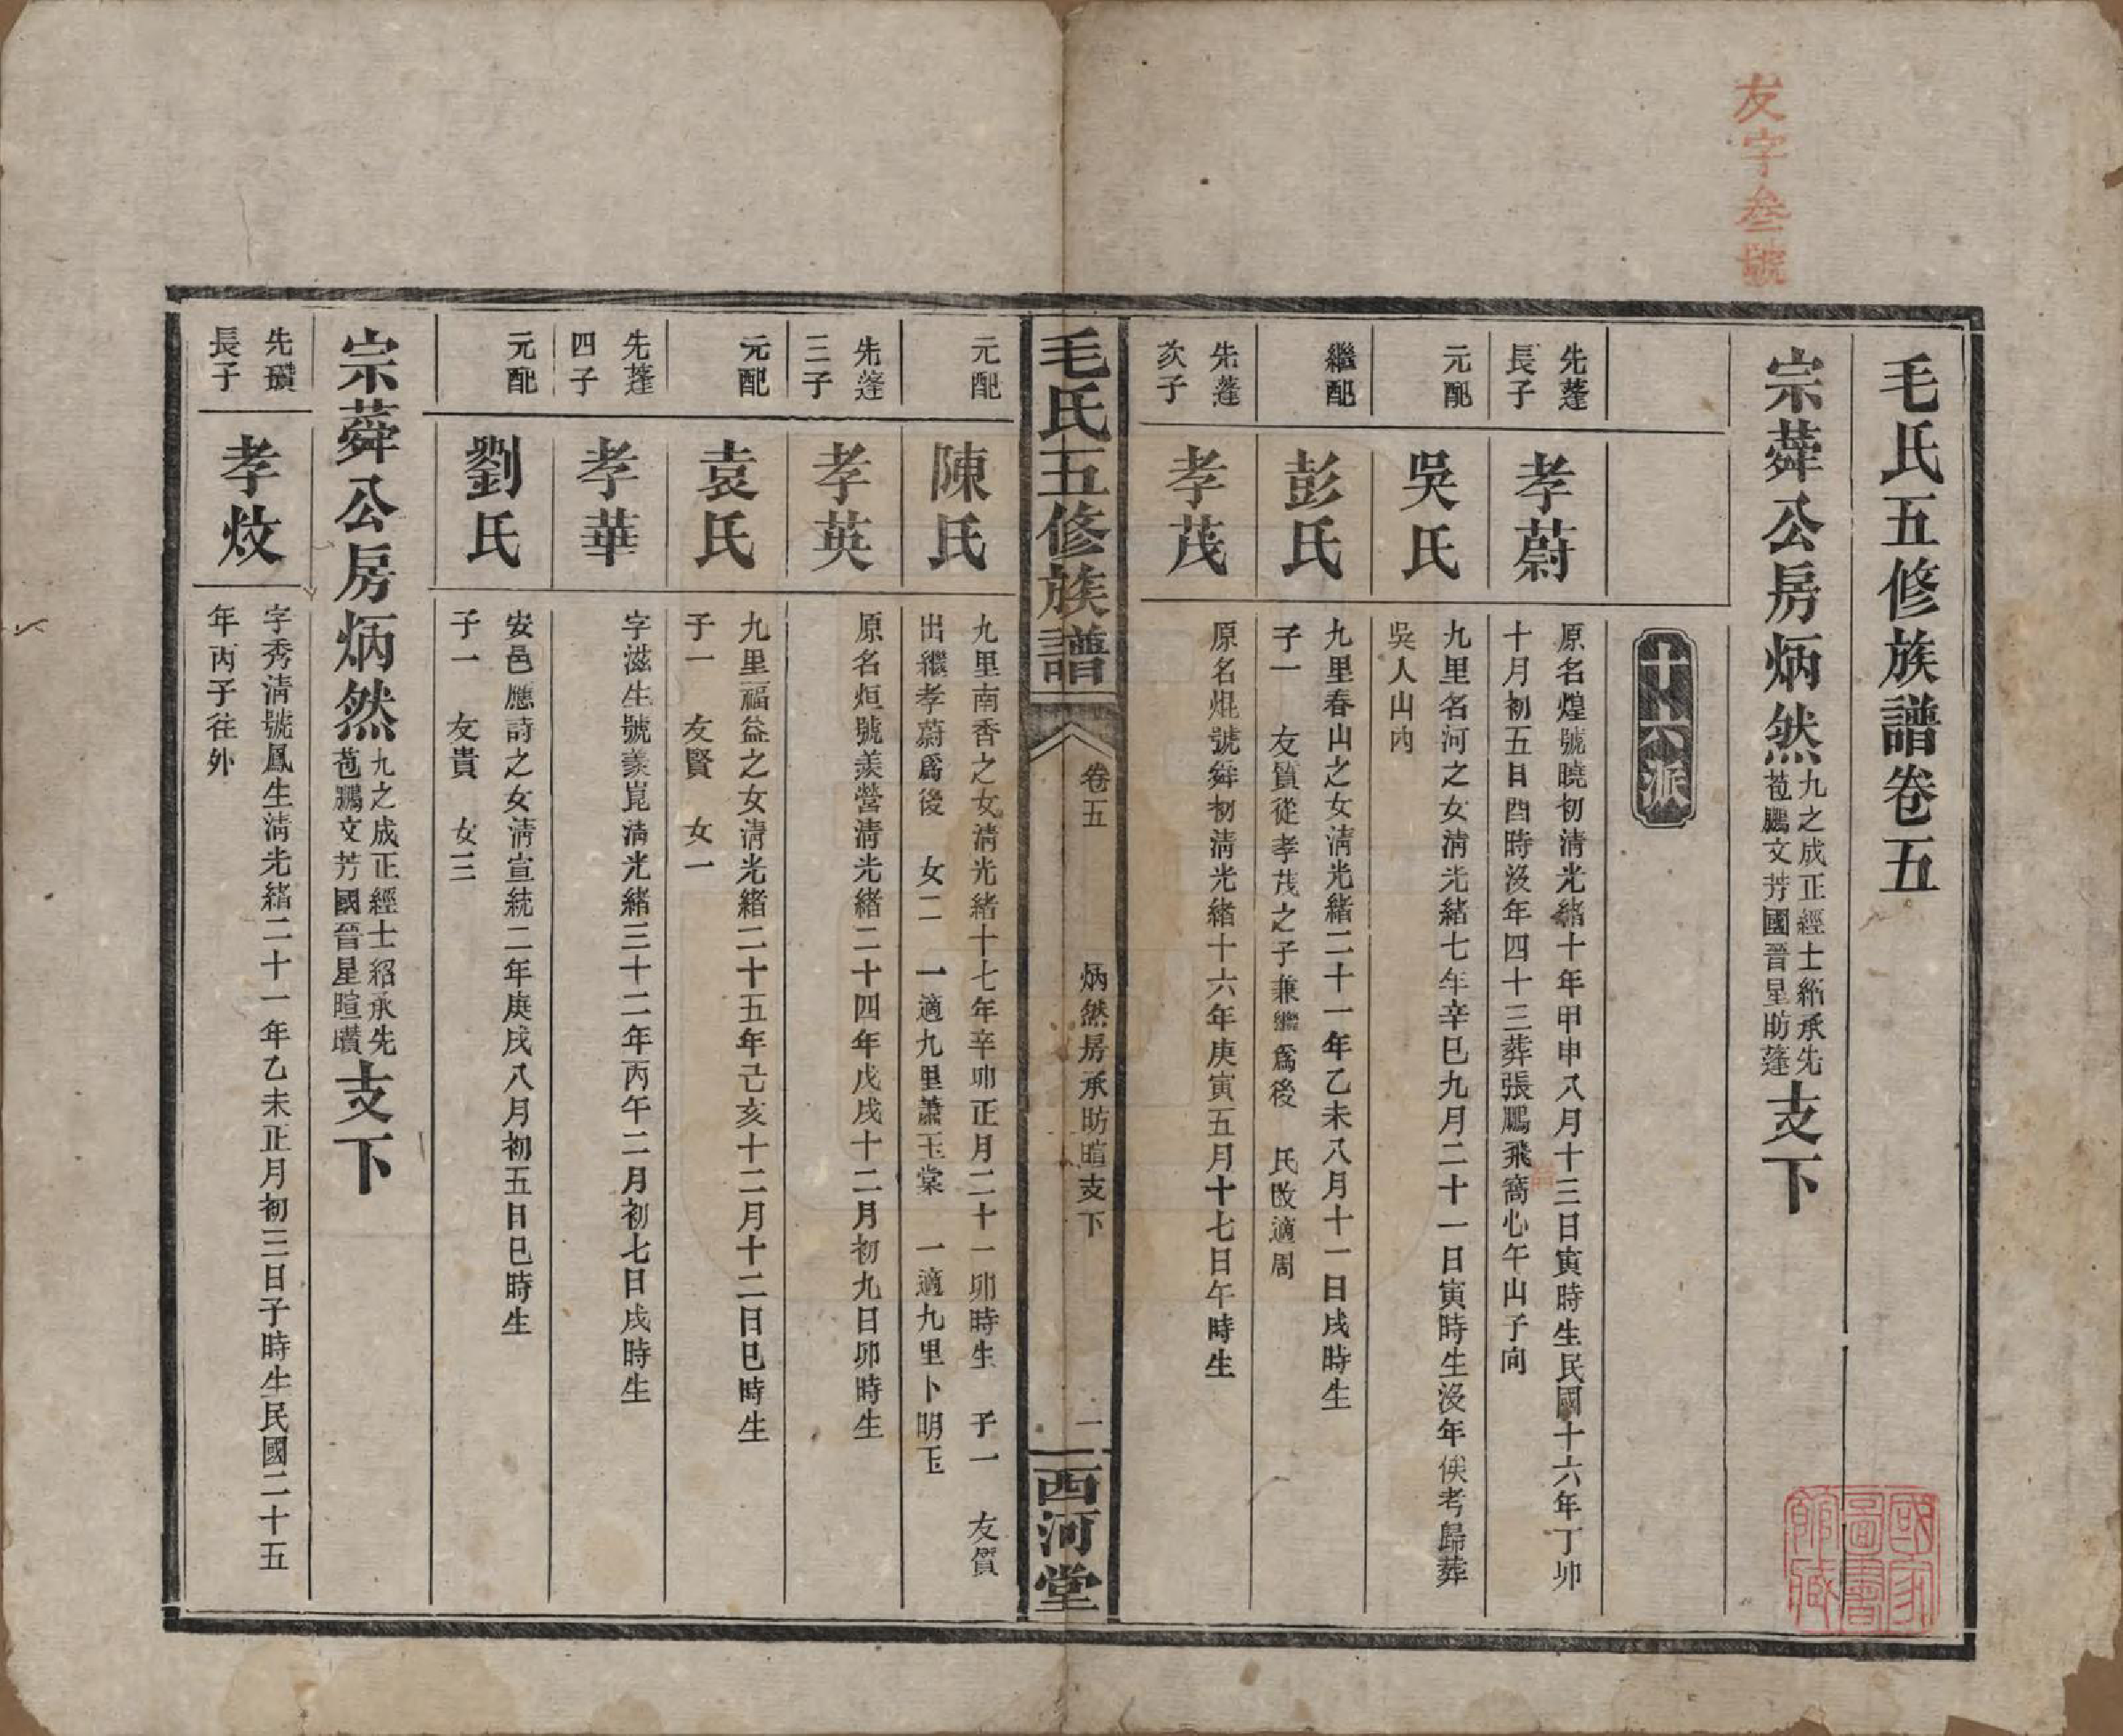 友字叁號
毛氏五修族譜卷五
宗蕣公房炳然
九之成正經士紹承先
苞鵬文芳國晉星昉蓬
支下
十六派
先蓬
長子
孝蔚
原名煌號曉初清光緒十年甲申八月十三日寅時生民國十六年丁卯
十月初五日酉時沒年四十三葬張鵬飛窩心午山子向
元配
吳氏
九里名河之女清光緒七年辛巳九月二十一日寅時生沒年俟考歸葬
吳人山內
繼配
彭氏
九里春山之女清光緒二十一年乙未八月十一日戌時生
子一　友質從孝茂之子兼繼爲後　民改適周
先蓬
次子
孝茂
原名焜號舜初清光緒十六年庚寅五月十七日午時生
毛氏五修族譜
卷五
炳然房承昉暄支下
一
西河堂
元配
陳氏
九里南香之女清光緒十七年辛卯正月二十一卯時生　子一　友質
出繼孝蔚爲後　女二　一適九里蕭玉棠　一適九里卜明玉
先蓬
三子
孝英
原名烜號羨營清光緒二十四年戊戌十二月初九日卯時生
元配
袁氏
九里福益之女清光緒二十五年己亥十二月十二日巳時生
子一　友賢　女一
先蓬
四子
孝華
字滋生號羨崑清光緒三十二年丙午二月初七日戌時生
元配
劉氏
安邑應詩之女清宣統二年庚戌八月初五日巳時生
子一　友貴　女三
宗蕣公房炳然
九之成正經士紹承先
苞鵬文芳國晉星暄瓚
支下
先瓚
長子
孝炆
字秀清號鳳生清光緒二十一年乙未正月初三日子時生民國二十五
年丙子往外
國家
圖書
館藏